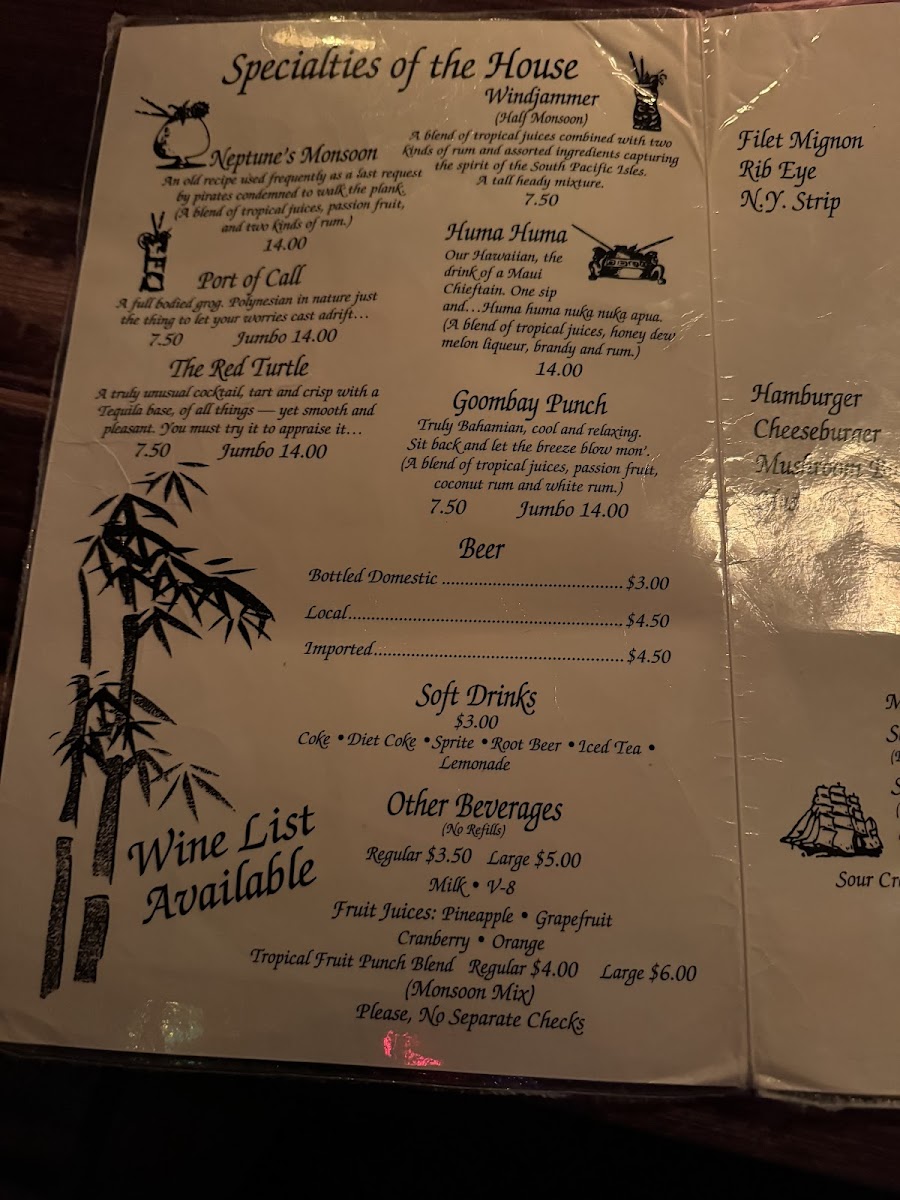 Specialties of the House
Neptune's Monsoon
An old recipe used frequently as a last request
by pirates condemned to walk the plank.
(A blend of tropical juices, passion fruit,
and two kinds of rum.)
14.00
Port of Call
A full bodied grog. Polynesian in nature just
the thing to let your worries cast adrift...
7.50 Jumbo 14.00
The Red Turtle
A truly unusual cocktail, tart and crisp with a
Tequila base, of all things — yet smooth and
pleasant. You must try it to appraise it...
7.50 Jumbo 14.00
Windjammer
(Half Monsoon)
A blend of tropical juices combined with two
kinds of rum and assorted ingredients capturing
the spirit of the South Pacific Isles.
A tall heady mixture.
7.50
Huma Huma
Our Hawaiian, the
drink of a Maui
Chieftain. One sip
and...Huma huma nuka nuka apua.
(A blend of tropical juices, honey dew
melon liqueur, brandy and rum.)
14.00
Goombay Punch
Truly Bahamian, cool and relaxing.
Sit back and let the breeze blow mon'.
(A blend of tropical juices, passion fruit,
coconut rum and white rum.)
7.50 Jumbo 14.00
Beer
Bottled Domestic ................................... $3.00
Local..................................................... $4.50
Imported................................................ $4.50
Soft Drinks
$3.00
Coke • Diet Coke • Sprite • Root Beer • Iced Tea •
Lemonade
Other Beverages
(No Refills)
Regular $3.50 Large $5.00
Milk • V-8
Fruit Juices: Pineapple • Grapefruit
Cranberry • Orange
Tropical Fruit Punch Blend Regular $4.00 Large $6.00
(Monsoon Mix)
Please, No Separate Checks
Wine List
Available
Filet Mignon
Rib Eye
N.Y. Strip
Hamburger
Cheeseburger
Mushroom
Sour